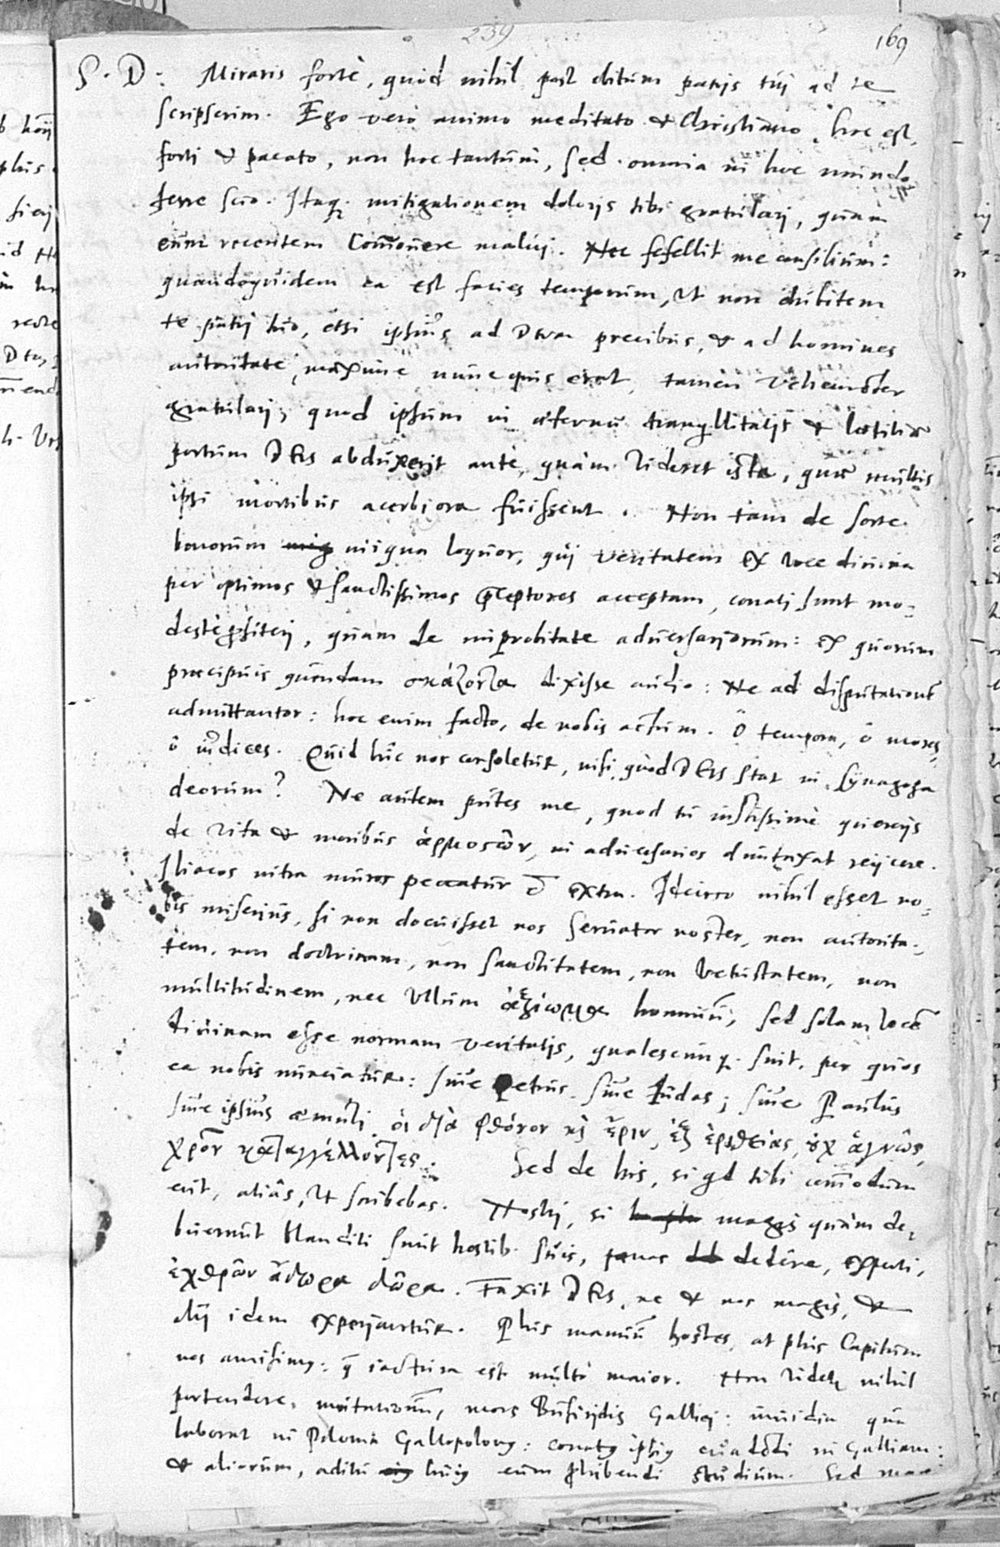 239
169
S. D. Miraris fortè, quòd nihil post obitum patris tui ad te
scripserim. Ego verò animo meditato & Christiano, hoc est,
forti & pacato, non hoc tantùm, sed omnia in hoc mundo
ferre scio. Itaq. mitigationem doloris tibi gratulari, quàm
eum recentem commovere malui. Nec fefellit me consilium:
quandoquidem ea est facies temporum, ut non dubitem
te patri tuo, etsi ipsius ad DEum precibus, & ad homines
autoritate, maximè nunc opus erat, tamen vehementer
gratulari, quod ipsum in aeternum tranquillitatis & laetitiae
portum DEus abduxerit antè, quàm videret ista, quae multis
ipsi mortibus acerbiora fuissent. Non tam de sorte
bonorum iniqua loquor, qui veritatem ex voce divina
per optimos & sanctissimos praeceptores acceptam, conati sunt mo-
destè profiteri, quàm de improbitate adversariorum: ex quorum
praecipuis quendam σκάζοντα dixisse audio: Ne ad disputationem
admittantor: hoc enim facto, de nobis actum. ô tempora, ô mores,
ô iudices. Quid hîc nos consoletur, nisi quòd DEus stat in synagoga
deorum? Ne autem putes me, quod tu iustissimè quereris
de vita & moribus ἁρμοστῶν, in adversarios duntaxat reijcere.
Iliacos intra muros peccatur & extra. Idcirco nihil esset no-
bis miserius, si non docuisset nos servator noster, non autorita-
tem, non doctrinam, non sanctitatem, non vetustatem, non
multitudinem, nec ullum ἀξίωμα hominum, sed solam vocem
divinam esse normam veritatis, qualescunq. sint, per quos
ea nobis nunciatur: sive Petrus, sive Iudas; sive Paulus
sive ipsius aemuli οἱ διὰ φθόνον κὶ ἔριν, ἐξ ἐριθείας, οὐχ ἁγνῶς,
χριστὸν καταγγέλλοντες. Sed de his, si qd tibi commodum
erit, aliàs, ut scribebas. Nostri, si magis quàm de-
buerunt blanditi sunt hostib. suis, poenas dedêre, experti,
ἐχθρῶν ἄδωρα δῶρα. Faxit DEus, ne & nos magis, &
alij idem experiantur. Plus manuum hostes, at plus capitum
nos amisimus: quae iactura est multò maior. Non videtur nihil
portendere, mutationum, mors Busiridis Gallici: invidia qua
laborat in Polonia Gallopolonus: conatus ipsius evadendi in Galliam:
& aliorum, aditu huius eum prohibendi studium. Sed